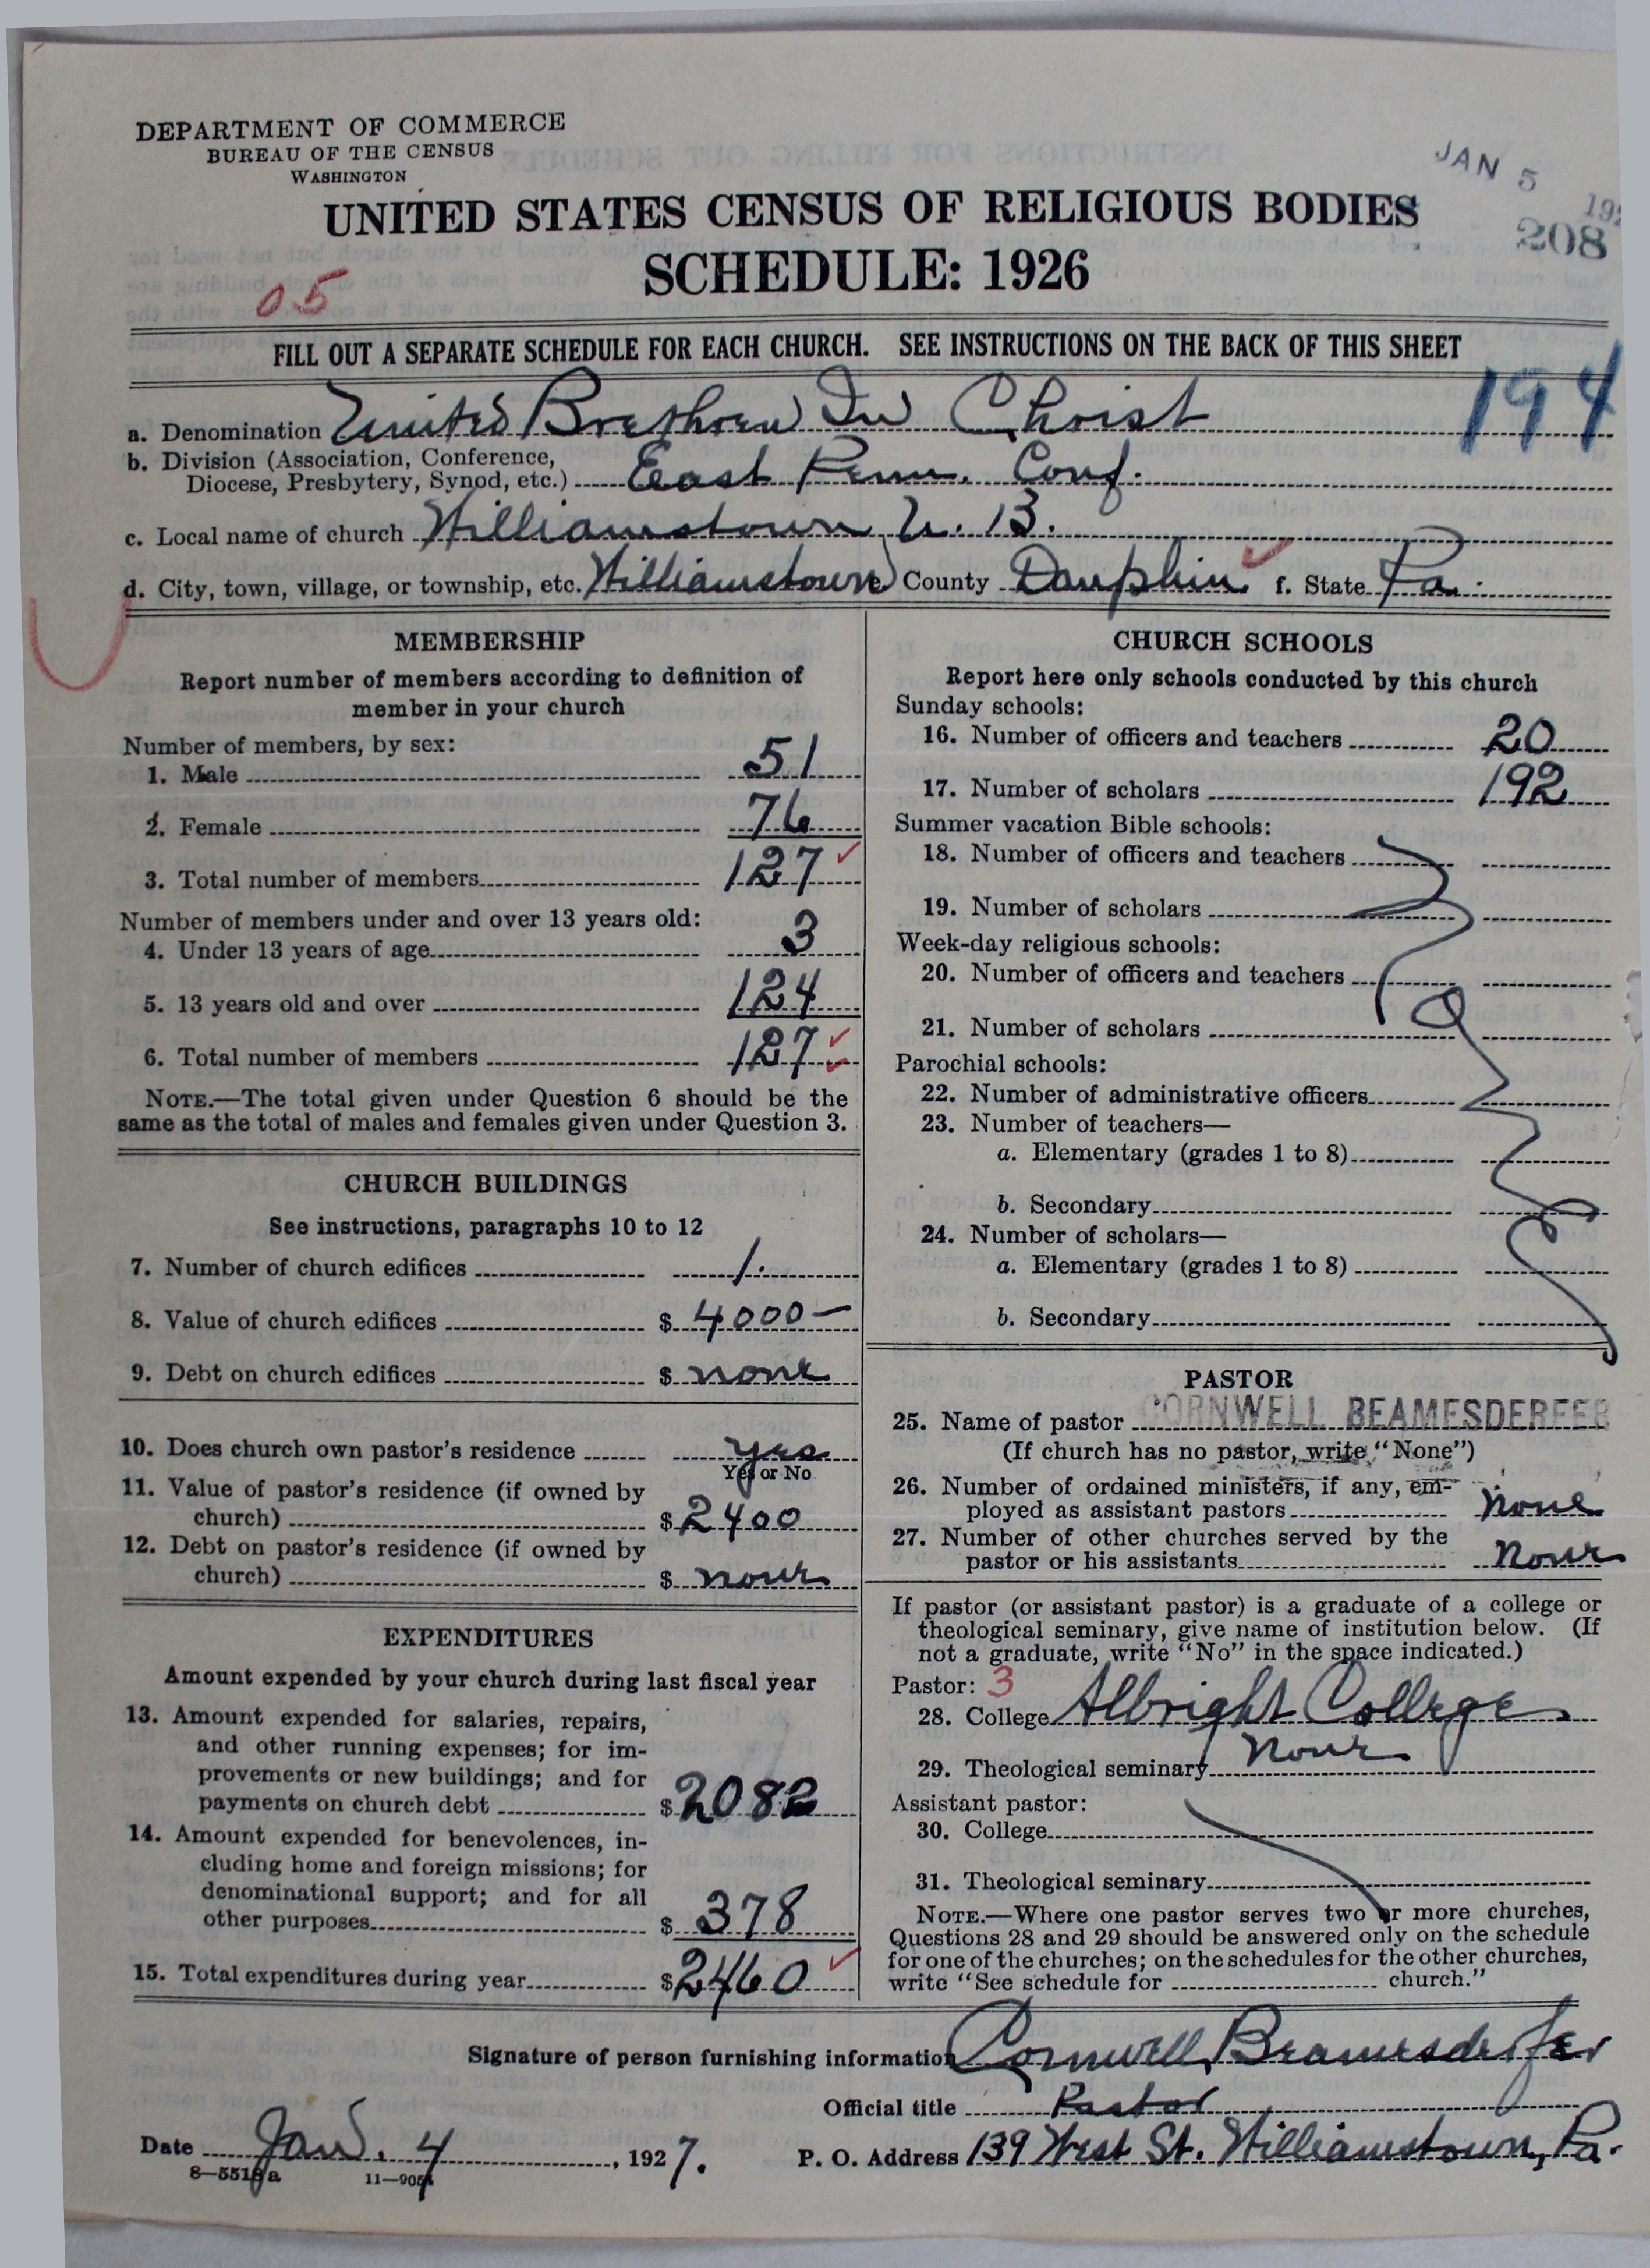 DEPARTMENT OF COMMERCE
BUREAU OF THE CENSUS
WASHINGTON
JAN 5 192
208
UNITED STATES CENSUS OF RELIGIOUS BODIES
SCHEDULE: 1926
05
FILL OUT A SEPARATE SCHEDULE FOR EACH CHURCH. SEE INSTRUCTIONS ON THE BACK OF THIS SHEET
194
a. Denomination United Brethren In Christ
b. Division (Association, Conference,
Diocese, Presbytery, Synod, etc.) East Penn. Conf.
c. Local name of church Williamstown U. B.
d. City, town, village, or township, etc. Williamstown e. County Dauphin f. State Pa.
MEMBERSHIP
Report number of members according to definition of
member in your church
Number of members, by sex:
1. Male 51
2. Female 76
3. Total number of members 127
Number of members under and over 13 years old:
4. Under 13 years of age 3
5. 13 years old and over 124
6. Total number of members 127
NOTE.—The total given under Question 6 should be the
same as the total of males and females given under Question 3.
CHURCH BUILDINGS
See instructions, paragraphs 10 to 12
7. Number of church edifices 1.
8. Value of church edifices $ 4000—
9. Debt on church edifices $ none
10. Does church own pastor's residence yes
Yes or No
11. Value of pastor's residence (if owned by
church) $ 2400
12. Debt on pastor's residence (if owned by
church) $ none
EXPENDITURES
Amount expended by your church during last fiscal year
13. Amount expended for salaries, repairs,
and other running expenses; for im-
provements or new buildings; and for
payments on church debt $ 2082
14. Amount expended for benevolences, in-
cluding home and foreign missions; for
denominational support; and for all
other purposes $ 378
15. Total expenditures during year $ 2460
CHURCH SCHOOLS
Report here only schools conducted by this church
Sunday schools:
16. Number of officers and teachers 20
17. Number of scholars 192
Summer vacation Bible schools:
18. Number of officers and teachers
19. Number of scholars
Week-day religious schools:
20. Number of officers and teachers
21. Number of scholars
Parochial schools:
22. Number of administrative officers
23. Number of teachers—
a. Elementary (grades 1 to 8)
b. Secondary
24. Number of scholars—
a. Elementary (grades 1 to 8)
b. Secondary
PASTOR
25. Name of pastor CORNWELL BEAMESDERFER
(If church has no pastor, write "None")
26. Number of ordained ministers, if any, em-
ployed as assistant pastors none
27. Number of other churches served by the
pastor or his assistants none
If pastor (or assistant pastor) is a graduate of a college or
theological seminary, give name of institution below. (If
not a graduate, write "No" in the space indicated.)
Pastor: 3
28. College Albright College
29. Theological seminary none
Assistant pastor:
30. College
31. Theological seminary
NOTE.—Where one pastor serves two or more churches,
Questions 28 and 29 should be answered only on the schedule
for one of the churches; on the schedules for the other churches,
write "See schedule for church."
Signature of person furnishing information Cornwell Beamesderfer
Official title Pastor
Date Jan. 4, 1927.
P. O. Address 139 West St. Williamstown, Pa.
8—5518a 11—9054